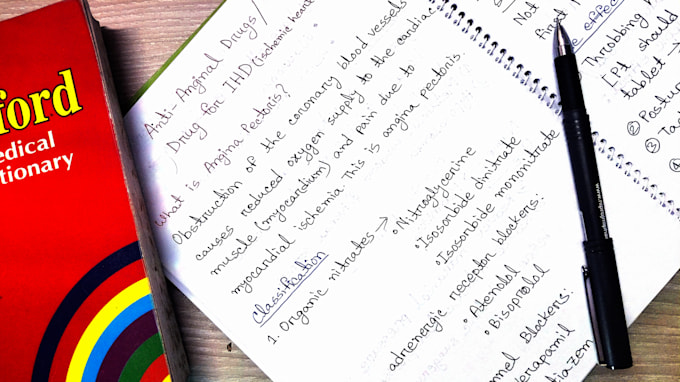 ford
edical
tionary
Anti-Anginal Drugs/
Drug for IHD (ischemic heart
What is Angina Pectoris?
Obstruction of the coronary blood vessels
causes reduced oxygen supply to the cardiac
muscle (myocardium) and pain due to
myocardial ischemia This is angina pectoris
Classification
1. Organic nitrates →
• Nitroglycerine
• Isosorbide dinitrate
• Isosorbide mononitrate
adrenergic receptor blockers:
• Atenolol
• Bisoprolol
nnel Blockers:
erapamil
tiazem
Not
First
e effec
Throbbing
LPt should
tablet →
② Postur
③ Ta
④